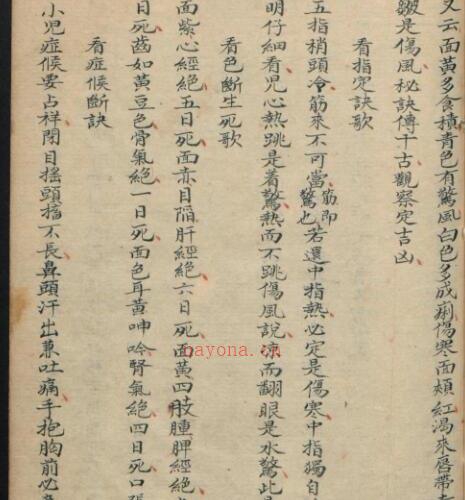 又云面黃多食積青色有驚風白色多成痢傷寒面頰紅渴來唇帶
皺是傷風秘訣傳千古觀察定吉凶
看指定訣歌
五指稍頭冷筋來不可當筋即驚也若還中指熱必定是傷寒中指獨自
明仔細看児心熱跳是着驚熱而不跳傷風說凉而翻眼是水驚此
看色斷生死歌
面紫心經絕五日死面赤目陷肝經絕六日死面黃四肢腫脾經絕
日死齒如黃豆色骨氣絕一日死面色耳黃呻吟腎氣絕四日死口
看症候斷訣
小児症候要占祥閉目搖頭搐不長鼻頭汗出兼吐痛手抱胸前必
nayona.cn